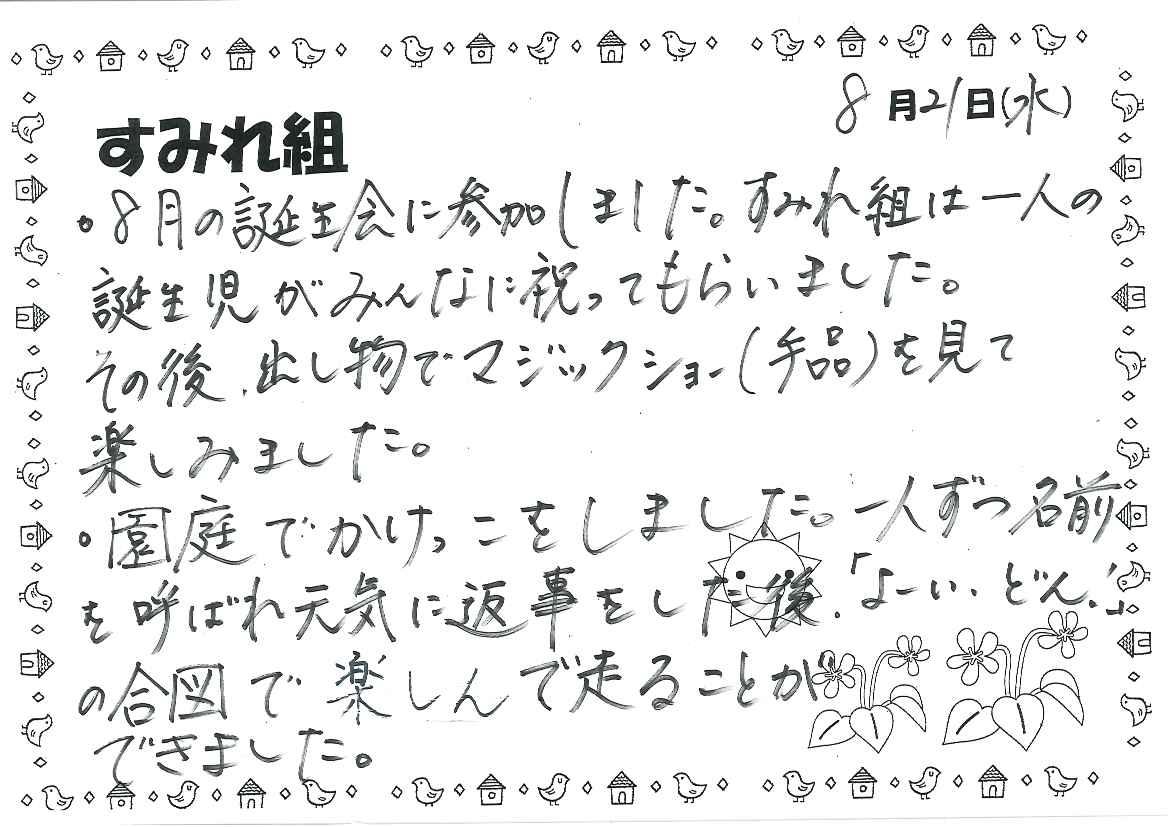 8月21日(水)
すみれ組
。8月の誕生会に参加しました。すみれ組は一人の
誕生児がみんなに祝ってもらいました。
その後、出し物でマジックショー(手品)を見て
楽しみました。
。園庭でかけっこをしました。一人ずつ名前
を呼ばれ元気に返事をした後、「よーい、どん！」
の合図で楽しんで走ることが
できました。